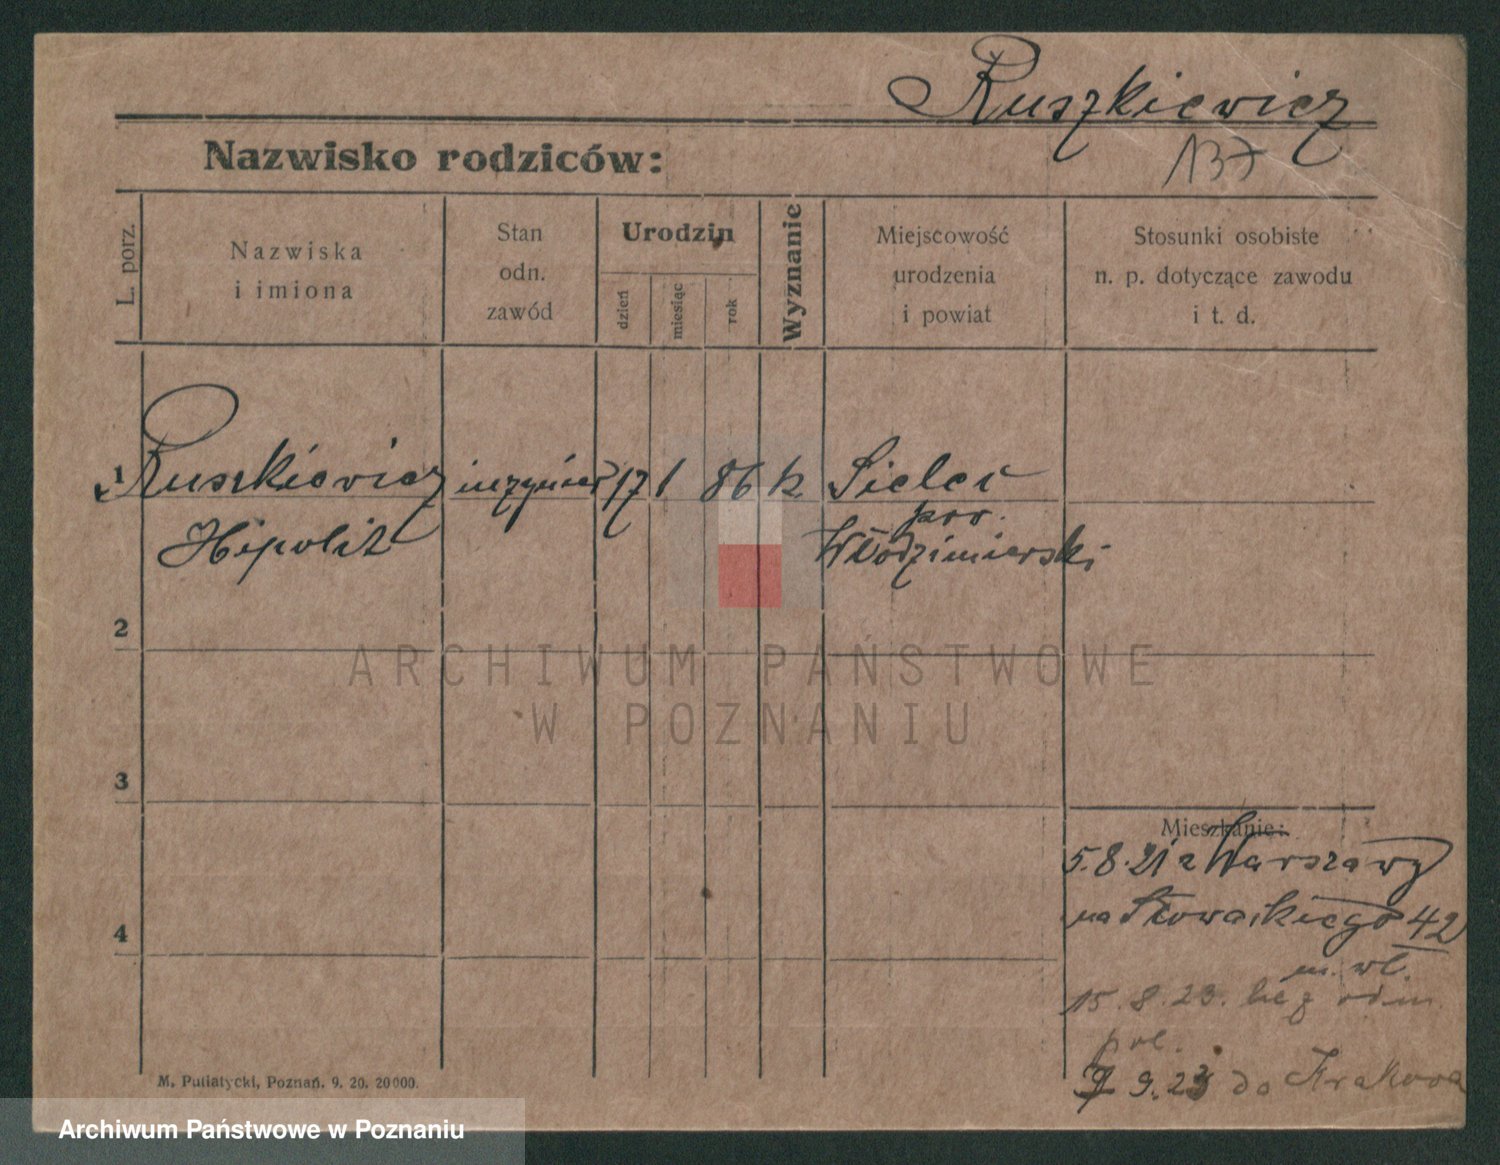 Ruszkiewicz
137
Nazwisko rodziców:
L. porz.
Nazwiska
i imiona
Stan
odn.
zawód
Urodzin
dzień
miesiąc
rok
Wyznanie
Miejscowość
urodzenia
i powiat
Stosunki osobiste
n. p. dotyczące zawodu
i t. d.
1 Ruszkiewicz inżynier 17 1 86 k Sielec
Hipolit
pow.
Włodzimierski
2
ARCHIWUM PAŃSTWOWE
W POZNANIU
3
Mieszkanie:
5.8.21 z Warszawy
na Słowackiego 42
m. wł.
4
15.8.23. bez odm.
pol.
9.23 do Krakowa
M. Putiatycki, Poznań. 9. 20. 20000.
Archiwum Państwowe w Poznaniu